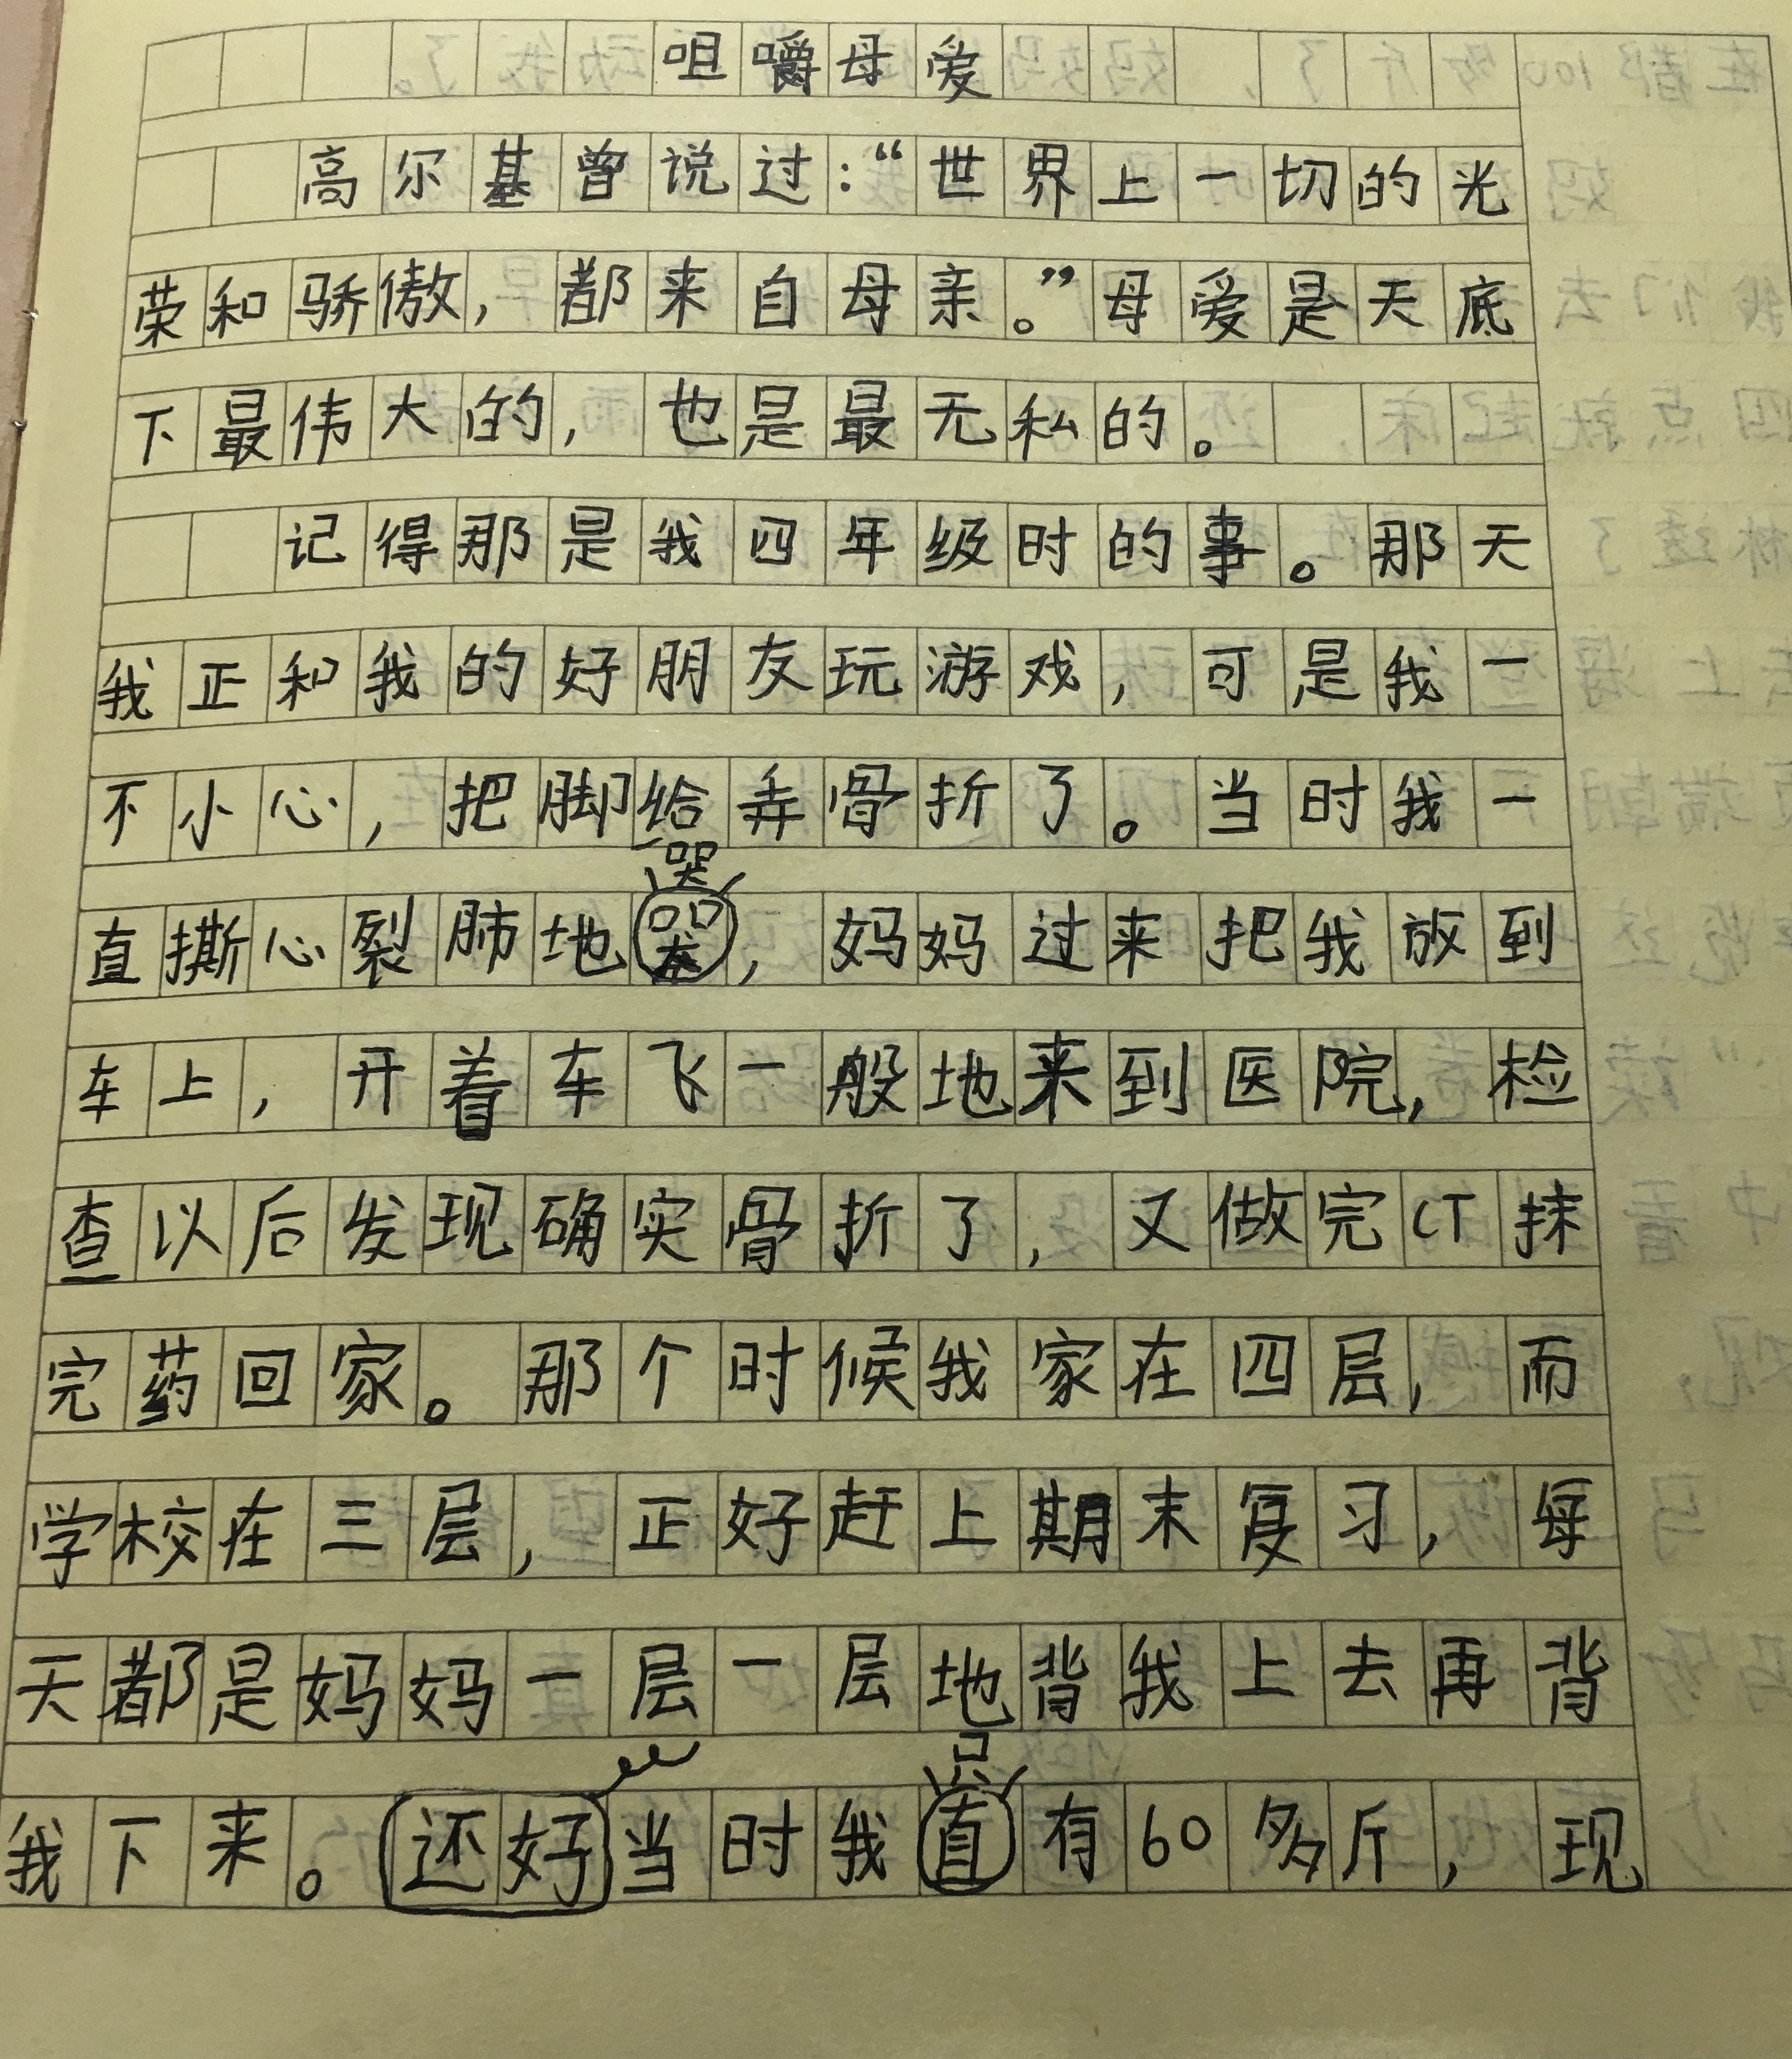 咀嚼母爱
高尔基曾说过：“世界上一切的光
荣和骄傲，都来自母亲。”母爱是天底
下最伟大的，也是最无私的。
记得那是我四年级时的事。那天
我正和我的好朋友玩游戏，可是我一
不小心，把脚给弄骨折了。当时我一
哭
直撕心裂肺地，妈妈过来把我放到
车上，开着车飞一般地来到医院，检
查以后发现确实骨折了，又做完CT抹
完药回家。那个时候我家在四层，而
学校在三层，正好赶上期末复习，每
天都是妈妈一层一层地背我上去再背
只
我下来。还好当时我直有60多斤，现